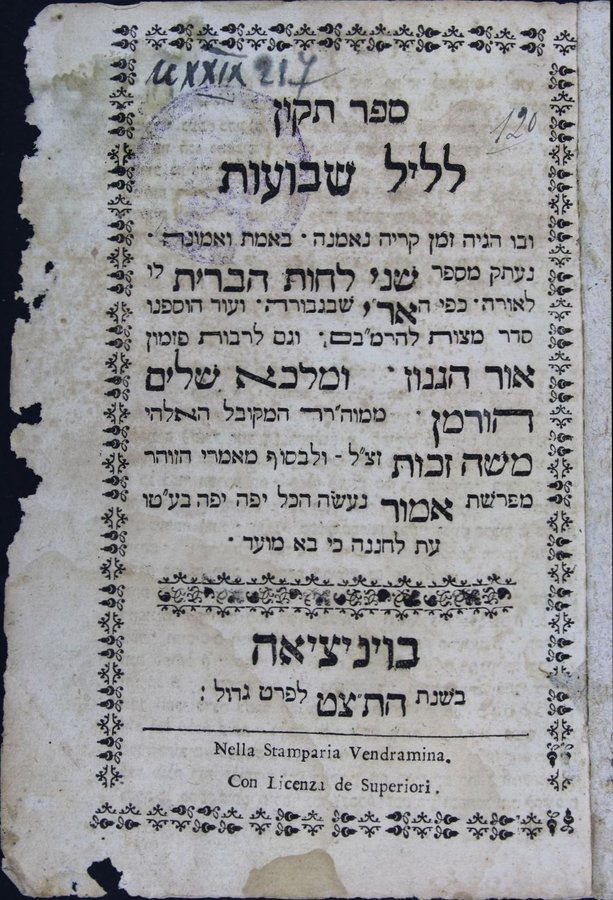 u XXIX 217
120
ספר תקון
לליל שבועות
ובו הגיה זמן קריה נאמנה · באמת ואמונה ·
נעתק מספר שני לחות הברית לו
לאורה · כפי האר״י שבגבורה · ועוד הוספנו
סדר מצות להרמ״בם : וגם לרבות פזמון
אור הגנון · ומלכא שלים
הורמן · ממוה״רר המקובל האלהי
משה זכות זצ״ל - ולבסוף מאמרי הזוהר
מפרשת אמור נעשה הכל יפה יפה בע״טו
עת לחננה כי בא מועד ·
בויניציאה
בשנת הת״צט לפרט גדול :
Nella Stamparia Vendramina.
Con Licenza de Superiori.